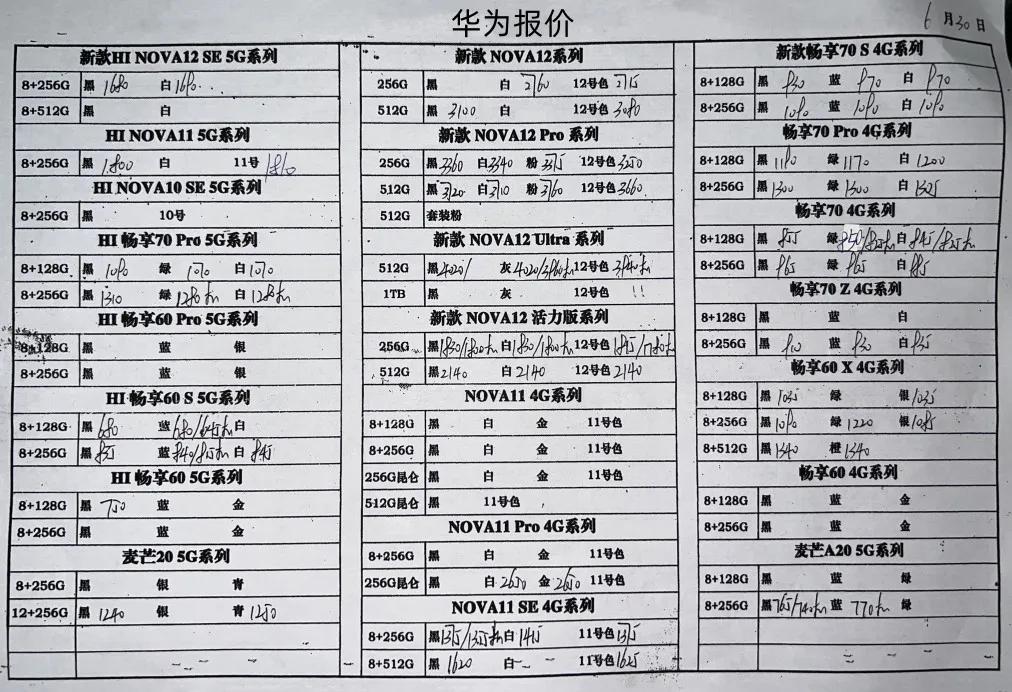 华为报价
6月30日
新款HI NOVA12 SE 5G系列
8+256G 黑 1680 白 1680
8+512G 黑 白
HI NOVA11 5G系列
8+256G 黑 1800 白 11号 1810
HI NOVA10 SE 5G系列
8+256G 黑 10号
HI 畅享70 Pro 5G系列
8+128G 黑 1080 绿 1070 白 1070
8+256G 黑 1310 绿 1280 白 1280
HI 畅享60 Pro 5G系列
8+128G 黑 蓝 银
8+256G 黑 蓝 银
HI 畅享60 S 5G系列
8+128G 黑 680 蓝 680/645 白
8+256G 黑 835 蓝 840/815 白 845
HI 畅享60 5G系列
8+128G 黑 750 蓝 金
8+256G 黑 蓝 金
麦芒20 5G系列
8+256G 黑 银 青
12+256G 黑 1240 银 青 1250
新款 NOVA12系列
256G 黑 白 2760 12号色
512G 黑 3100 白 12号色 3080
新款 NOVA12 Pro 系列
256G 黑 3360 白 3340 粉 12号色 3250
512G 黑 3720 白 3710 粉 3760 12号色 3660
512G 套装粉
新款 NOVA12 Ultra 系列
512G 黑 4020/ 灰 4020/3960 12号色 3940
1TB 黑 灰 12号色
新款 NOVA12 活力版系列
256G 黑 1830/1800 白 1830/1800 12号色 1815/1780
512G 黑 2140 白 2140 12号色 2140
NOVA11 4G系列
8+128G 黑 白 金 11号色
8+256G 黑 白 金 11号色
256G昆仑 黑 白 金 11号色
512G昆仑 黑 11号色
NOVA11 Pro 4G系列
8+256G 黑 白 金 11号色
256G昆仑 黑 白 2650 金 2650 11号色
NOVA11 SE 4G系列
8+256G 黑 白 1415 11号色
8+512G 黑 1620 白 11号色 1625
新款畅享70 S 4G系列
8+128G 黑 830 蓝 870 白 870
8+256G 黑 1080 蓝 1080 白 1080
畅享70 Pro 4G系列
8+128G 黑 1180 绿 1170 白 1200
8+256G 黑 1300 绿 1300 白 1325
畅享70 4G系列
8+128G 黑 855 绿 850/825 白 845/825
8+256G 黑 965 绿 965 白
畅享70 Z 4G系列
8+128G 黑 蓝 白
8+256G 黑 810 蓝 830 白 835
畅享60 X 4G系列
8+128G 黑 1035 绿 银 1035
8+256G 黑 1080 绿 1220 银 1085
8+512G 黑 1340 橙 1340
畅享60 4G系列
8+128G 黑 蓝 金
8+256G 黑 蓝 金
麦芒A20 5G系列
8+128G 黑 蓝 绿
8+256G 黑 765/740 蓝 770 绿